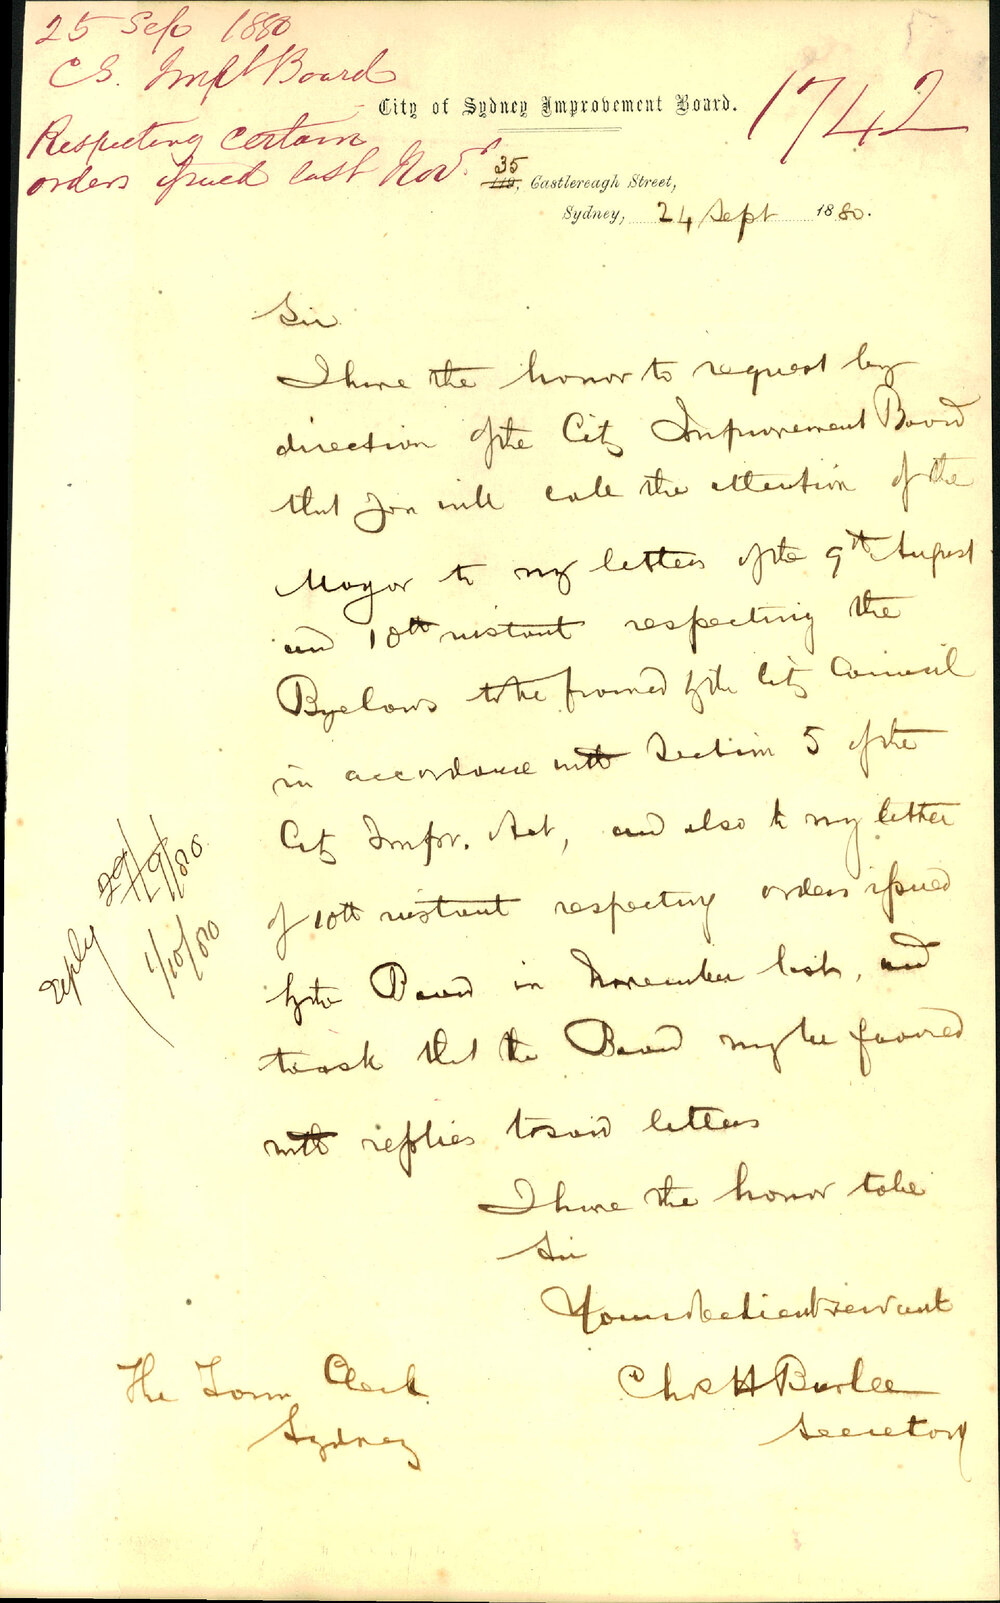 25 Sep 1880
CS. Impt Board
Respecting certain
orders issued last Novr
1742
City of Sydney Improvement Board.
35
119, Castlereagh Street,
Sydney, 24 Sept 1880.
Sir
I have the honor to request by
direction of the City Improvement Board
that you will call the attention of the
Mayor to my letters of the 9th August
and 10th instant respecting the
Byelaws to be framed by the City Council
in accordance with Section 5 of the
City Impr. Act, and also to my letter
of 10th instant respecting orders issued
by the Board in November last, and
to ask that the Board may be favored
with replies to said letters
I have the honor to be
Sir
Your obedient servant
Chas H Burlee
Secretary
The Town Clerk
Sydney
reply
29/9/80
1/10/80